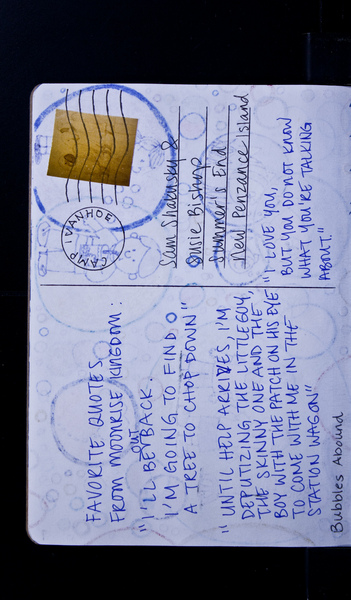 FAVORITE QUOTES
FROM MOONRISE KINGDOM:
"I'LL BE out BACK.
I'M GOING TO FIND
A TREE TO CHOP DOWN"
"UNTIL HELP ARRIVES, I'M
DEPUTIZING THE LITTLE GUY,
THE SKINNY ONE AND THE
BOY WITH THE PATCH ON HIS EYE
TO COME WITH ME IN THE
STATION WAGON"
Bubbles Abound
CAMP IVANHOE
Sam Shakusky &
Susie Bishop
Summer's End
New Penzance Island
"I LOVE YOU,
BUT YOU DO NOT KNOW
WHAT YOU'RE TALKING
ABOUT"